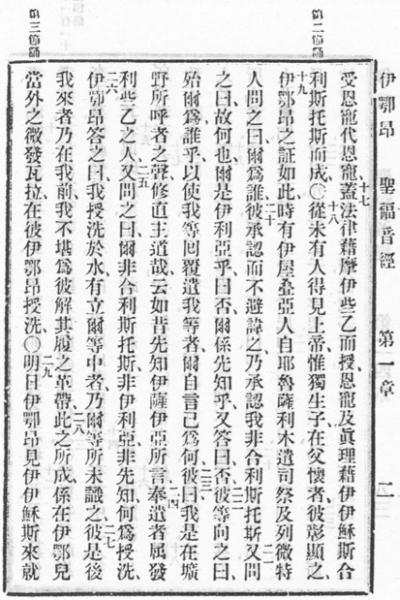 伊鄂昂 聖福音經 第一章
受恩寵代恩寵、十七蓋法律藉摩伊些乙而授、恩寵及眞理藉伊伊穌斯合
利斯托斯而成、〇十八從未有人得見上帝、惟獨生子在父懷者、彼彰顯之、
十九伊鄂昂之証如此、時有伊屋叠亞人自耶魯薩利木遣司祭及列微特
人問之曰、爾爲誰、二十彼承認而不避諱之、乃承認我非合利斯托斯、二一又問
之曰、故何也、爾是伊利亞乎、曰否、爾係先知乎、又答曰否、二二彼等向之曰、
殆爾爲誰乎、以使我等回覆遣我等者、爾自言己爲何、二三彼曰、我是在壙
野所呼者之聲、修直主道哉、云如昔先知伊薩伊亞所言、二四奉遣者属發
利些乙之人、二五又問之曰、爾非合利斯托斯、非伊利亞、非先知、何爲授洗、
二六伊鄂昂答之曰、我授洗於水、有立爾等中者、乃爾等所未識之、二七彼是後
我來者、乃在我前、我不堪爲彼解其履之革帶、二八此之所成、係在伊鄂兒
當外之微發瓦拉、在彼伊鄂昂授洗、〇二九明日伊鄂昂見伊伊穌斯來就